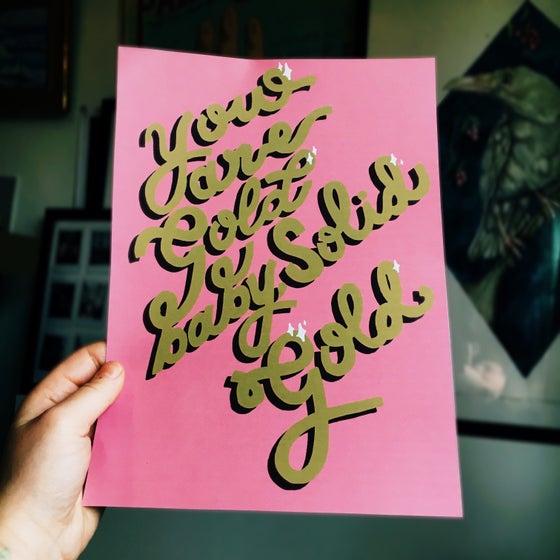 You
are
Gold
baby, Solid
Gold